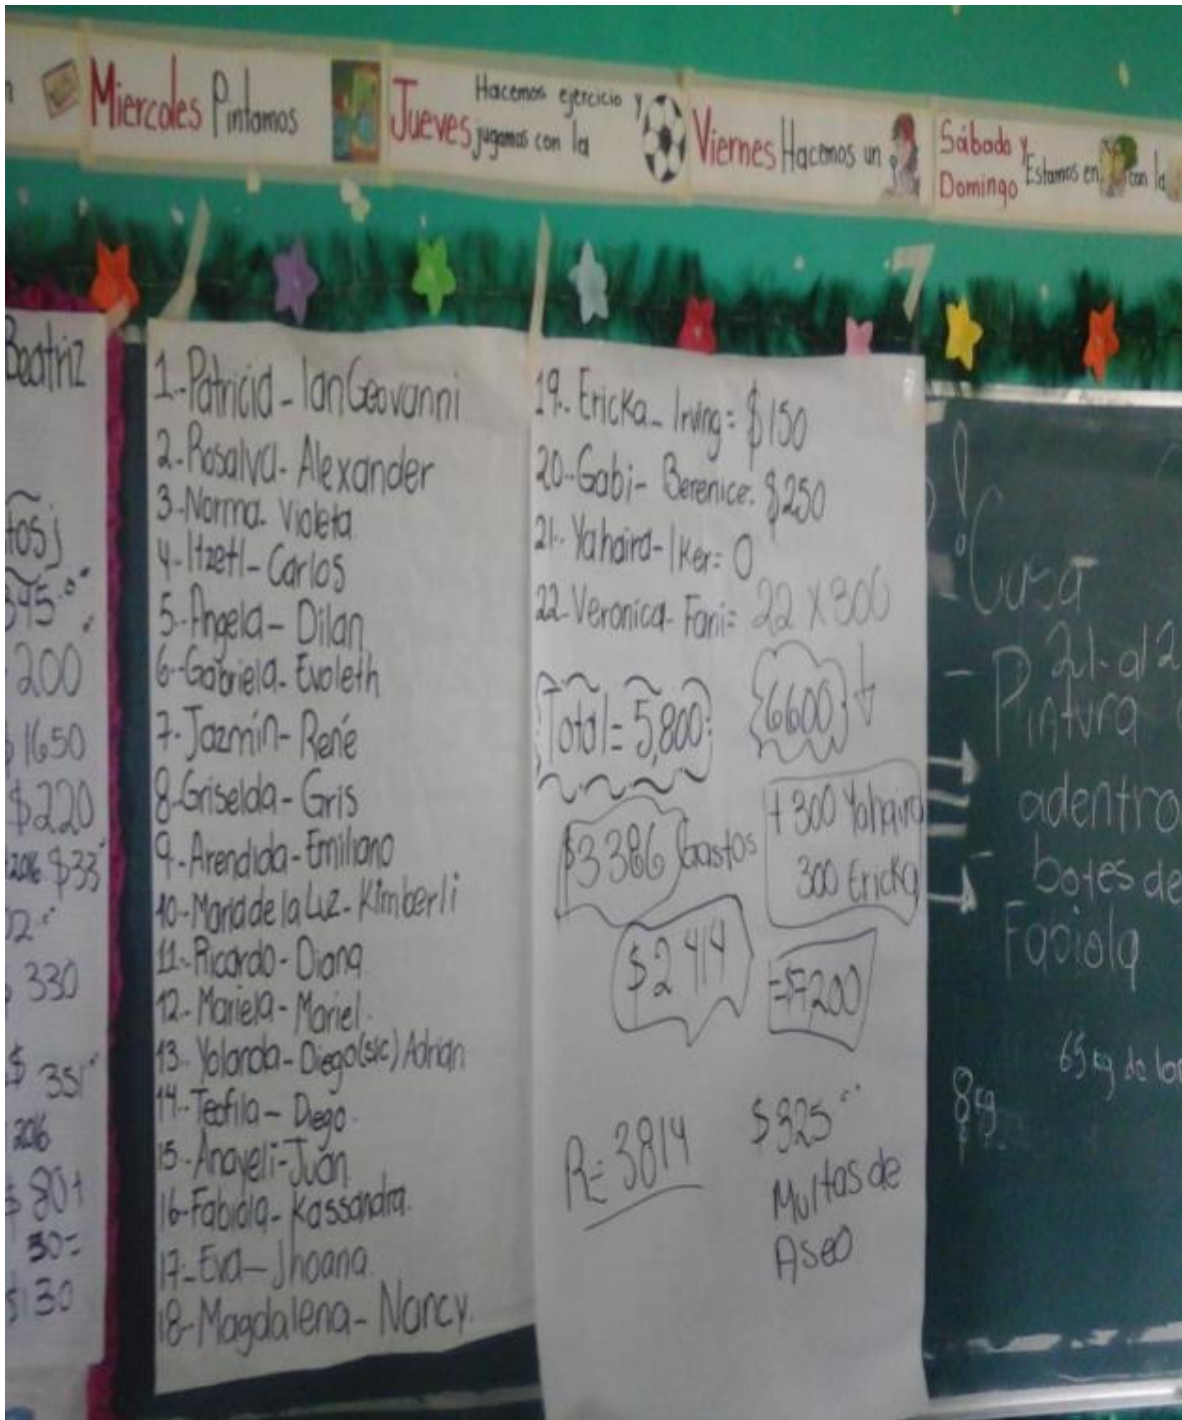 Miercoles Pintamos
Jueves Hacemos ejercicio y
jugamos con la
Viernes Hacemos un
Sábado y
Domingo Estamos en con la
Beatriz
tosj
345
200
$1650
$220
2016 $33
330
$ 351
2016
$ 801
30=
$130
1-Patricia-Ian Geovanni
2-Rosalva-Alexander
3-Norma-Violeta
4-Itzetl-Carlos
5-Angela-Dilan
6-Gabriela-Evoleth
7-Jazmín-René
8-Griselda-Gris
9-Arendida-Emiliano
10-Maria de la Luz-Kimberli
11-Ricardo-Diana
12-Mariela-Mariel.
13-Yolanda-Diego(sic) Adrian
14-Teofila-Diego.
15-Anayeli-Juán
16-Fabiola-Kassandra.
17-Eva-Jhoana
18-Magdalena-Nancy.
19-Ericka-Irving= $150
20-Gabi-Berenice= $250
21-Yahaira-Iker= 0
22-Veronica-Fani= 22 X 300
Total= 5,800
6600
$3386 Gastos
+ 300 Yahaira
300 Ericka
$2414
=$7200
R= 3814
$325
Multas de
Aseo
Casa
21-al 2
- Pintura
adentro
- botes de
Fabiola
65 kg de
8 kg